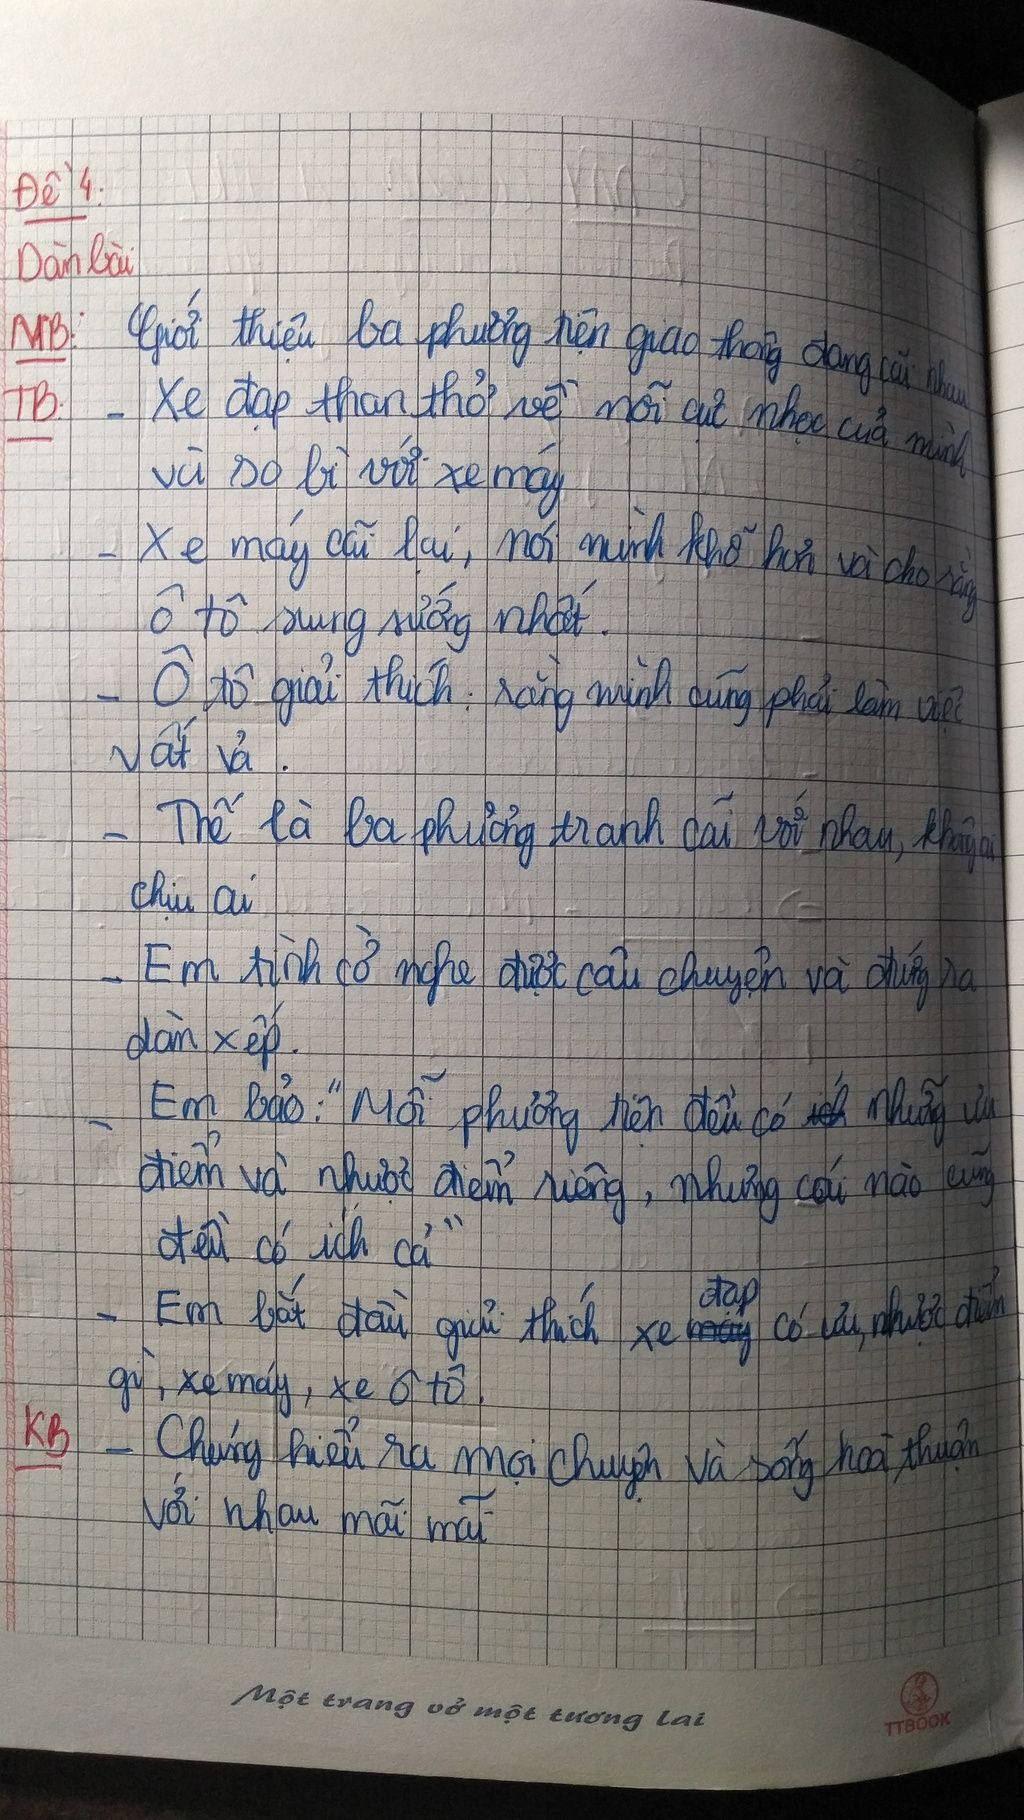 Đề 4:
Dàn bài
MB: Giới thiệu ba phương tiện giao thông đang cãi nhau
TB: - Xe đạp than thở về nỗi cực nhọc của mình
và so bì với xe máy
- Xe máy cãi lại, nói mình khổ hơn và cho rằng
ô tô sung sướng nhất.
- Ô tô giải thích rằng mình cũng phải làm việc
vất vả.
- Thế là ba phương tranh cãi với nhau, không ai
chịu ai
- Em tình cờ nghe được câu chuyện và đứng ra
dàn xếp.
- Em bảo: "Mỗi phương tiện đều có những ưu
điểm và nhược điểm riêng, nhưng cái nào cũng
đều có ích cả"
- Em bắt đầu giải thích xe đạp có ưu, nhược điểm
gì, xe máy, xe ô tô.
KB - Chúng hiểu ra mọi chuyện và sống hoà thuận
với nhau mãi mãi
Một trang vở một tương lai
TTBOOK